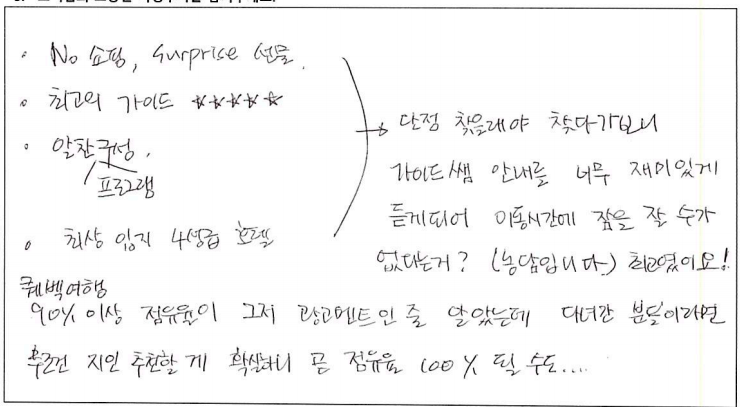 · No 쇼핑, Surprise 선물.
· 최고의 가이드 ☆☆☆☆☆
· 알찬구성.
프로그램
· 최상 입지 4성급 호텔
→ 단점 찾을래야 찾다가보니
가이드쌤 안내를 너무 재미있게
듣게되어 이동시간에 잠을 잘 수가
없다는거? (농담입니다) 최고였어요!
퀘벡여행
90% 이상 점유율이 그저 광고멘트인 줄 알았는데 다녀간 분들이라면
무조건 지인 추천할 게 확실하니 곧 점유율 100% 될 수도....